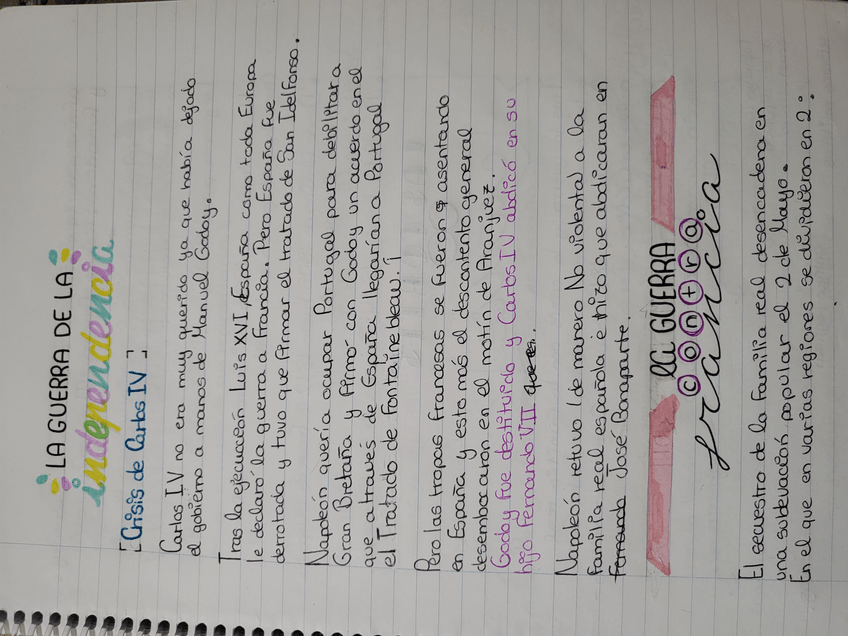 LA GUERRA DE LA
independencia
[Crisis de Carlos IV]
Carlos IV no era muy querido ya que había dejado
el gobierno a manos de Manuel Godoy.
Tras la ejecuación Luis XVI, España como toda Europa
le declaró la guerra a Francia. Pero España fue
derrotada y tuvo que firmar el tratado de San Idelfonso.
Napoleón quería ocupar Portugal para debilitar a
Gran Bretaña y firmó con Godoy un acuerdo en el
que a través de España llegarían a Portugal
el Tratado de Fontainebleau.
Pero las tropas francesas se fueron asentando
en España y esto más el descontento general
desembocaron en el motín de Aranjuez.
Godoy fue destituido y Carlos IV abdicó en su
hijo Fernando VII
Napoleón retuvo (de manera No violenta) a la
familia real española e hizo que abdicaran en
Fernando José Bonaparte.
la GUERRA
contra
francia
El secuestro de la familia real desencadena en
una sublevación popular el 2 de Mayo.
En el que en varias regiones se dividieron en 2: